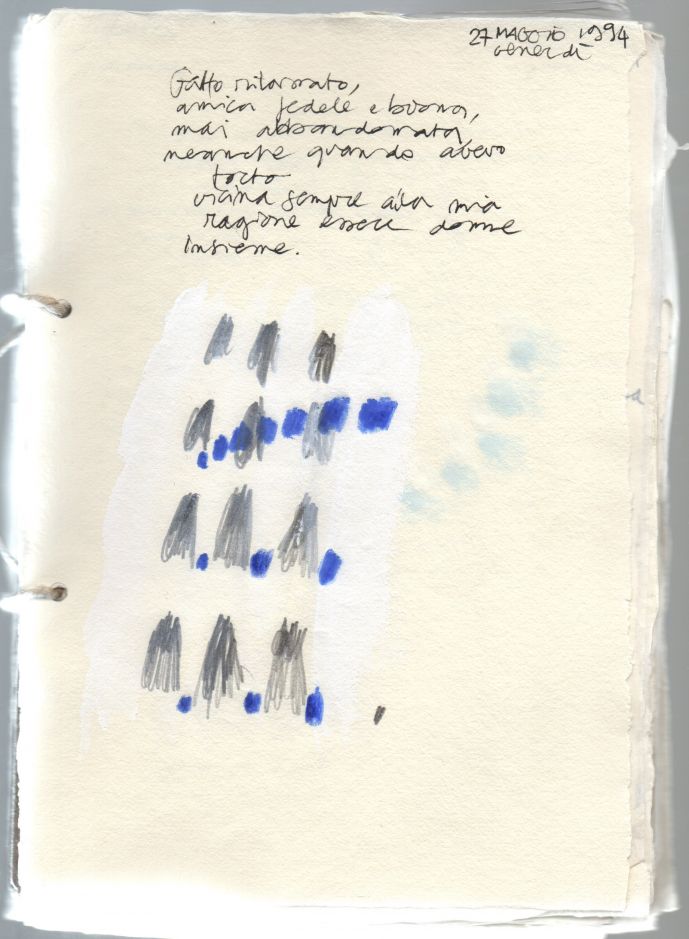 27 MAGGIO 1994
venerdì
Gatto ritornato,
amica fedele e buona,
mai abbandonata
neanche quando avevo
torto
vicina sempre alla mia
ragione essere donne
insieme.